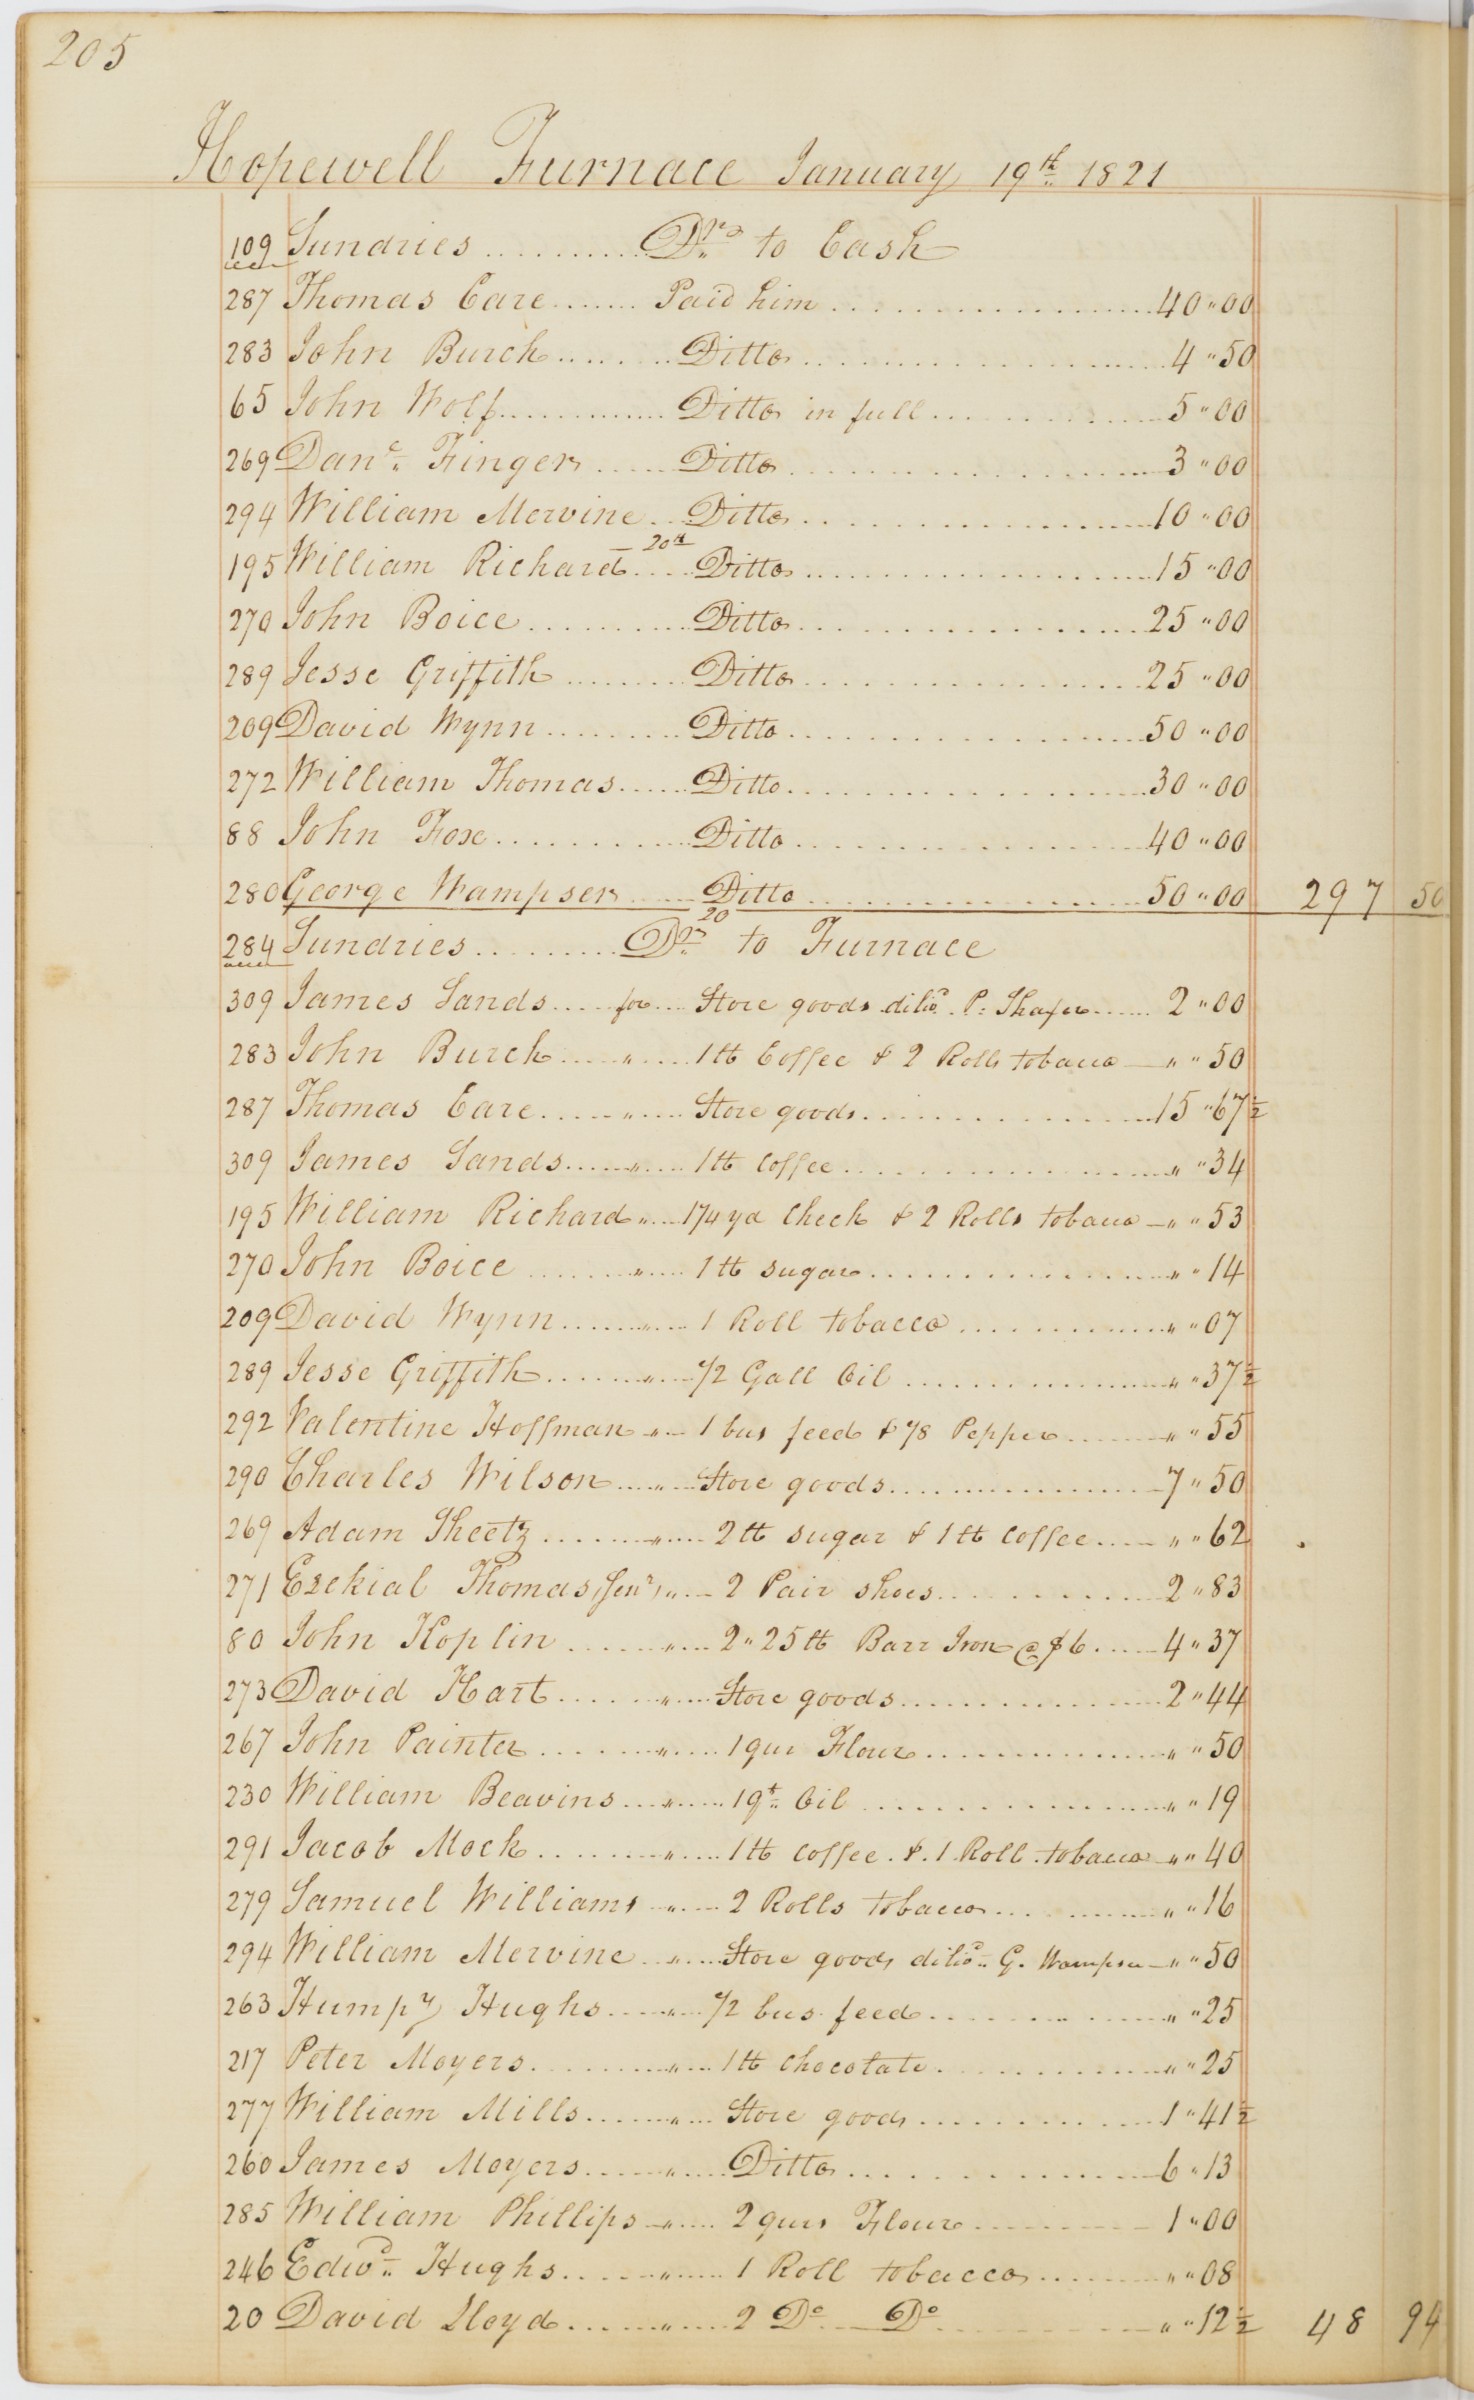 205
Hopewell Furnace January 19th 1821
109 Sundries ........... Drs to Cash
287 Thomas Care ....... Paid him ................... 40 " 00
283 John Burch ........ Ditto ................... 4 " 50
65 John Wolf ............. Ditto in full ............... 5 " 00
269 Danl. Finger ...... Ditto ................... 3 " 00
294 William Mervine .... Ditto ................... 10 " 00
20th
195 William Richard ..... Ditto ................... 15 " 00
270 John Boice .......... Ditto ................... 25 " 00
289 Jesse Griffith ........ Ditto ................... 25 " 00
209 David Wynn .......... Ditto ................... 50 " 00
272 William Thomas ...... Ditto ................... 30 " 00
88 John Fox ............. Ditto ................... 40 " 00
280 George Wampser ..... Ditto ................... 50 " 00 297 50
20
284 Sundries ......... Drs to Furnace
309 James Sands ..... for ... Store goods delivd. P. Shafer ...... 2 " 00
283 John Burch ..... " .... 1 lb Coffee & 2 Rolls tobacco — " " 50
287 Thomas Care ..... " .... Store goods ............... 15 " 67 1/2
309 James Sands ..... " .... 1 lb Coffee ................ " " 34
195 William Richard " .... 1 1/4 yd Check & 2 Rolls tobacco — " " 53
270 John Boice ....... " .... 1 lb sugar ................ " " 14
209 David Wynn ...... " .... 1 Roll tobacco ............ " " 07
289 Jesse Griffith ...... " .... 1/2 Gall Oil ............... " " 37 1/2
292 Valentine Hoffman " .. 1 bus feed & 1/8 Pepper ....... " " 55
290 Charles Wilson .... " .... Store goods ................ 7 " 50
269 Adam Sheetz ....... " .... 2 lb sugar & 1 lb Coffee .... " " 62
271 Ezekial Thomas (Senr) " ... 2 Pair shoes ............. 2 " 83
80 John Koplin ...... " .... 2 " 25 lb Barr Iron @ $6 ..... 4 " 37
273 David Hart ....... " .... Store goods ............... 2 " 44
267 John Painter ...... " .... 1 qur Flour ............... " " 50
230 William Beavins ... " .... 1 qt. Oil ................. " " 19
291 Jacob Mock ....... " .... 1 lb Coffee . & . 1 Roll . tobacco " " 40
279 Samuel Williams " .... 2 Rolls tobacco ........... " " 16
294 William Mervine .. " .... Store goods delivd. G. Wampser — " " 50
263 Humpy Hughs .... " .... 1/2 bus feed .............. " " 25
217 Peter Moyers ........ " .... 1 lb Chocolate ............. " " 25
277 William Mills ...... " .... Store goods .............. 1 " 41 1/2
260 James Moyers ..... " .... Ditto ................. 6 " 13
285 William Phillips — " .... 2 qurs Flour ............ 1 " 00
246 Edwd. Hughs ...... " .... 1 Roll tobacco ......... " " 08
20 David Lloyd ...... " .... 2 Do Do ............ " " 12 1/2 48 94